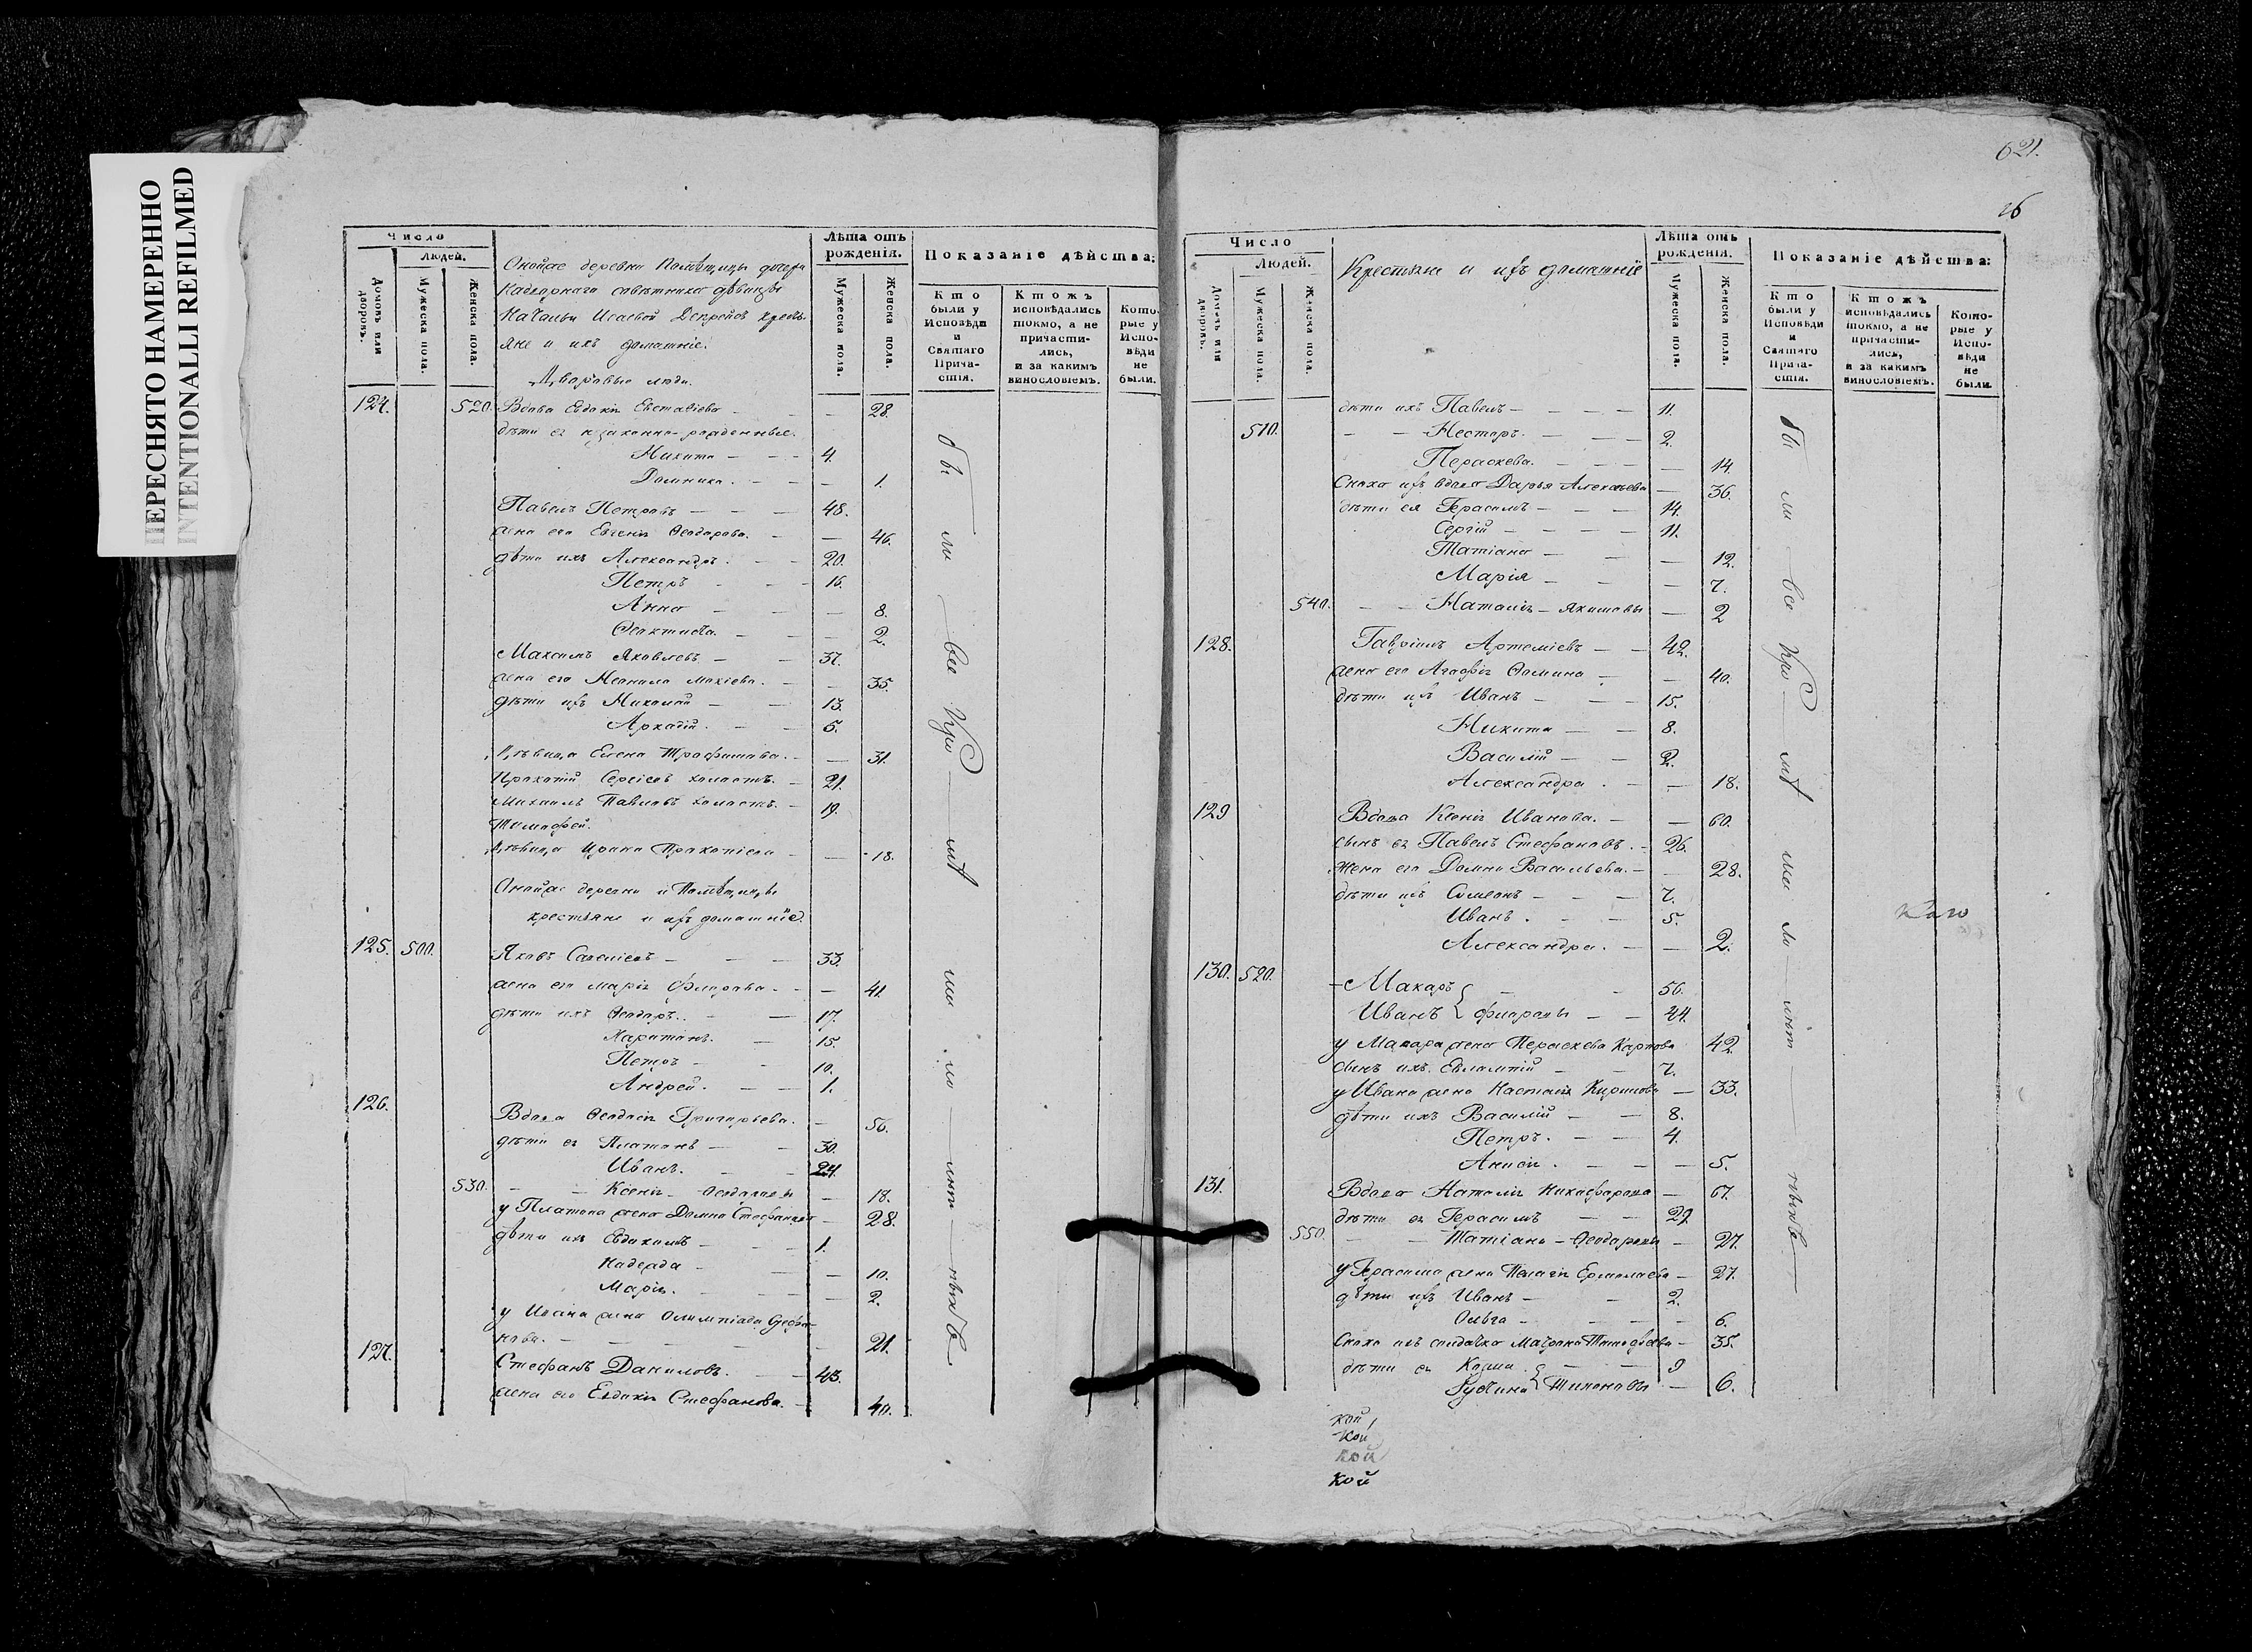 ПЕРЕСНЯТО НАМЕРЕННО
INTENTIONALLI REFILMED
Число
Людей.
Домовъ или дворовъ.
Мужеска пола.
Женска пола.
Оной же деревни Помѣщицы дочери
совѣтника дѣвицы
Исаевой кресть
яне и ихъ домашніе.
Дворовые люди.
Лѣта отъ рожденія.
Мужеска пола.
Женска пола.
Показаніе дѣйства:
Кто были у Исповѣди и Святаго Прича-стія.
Ктожъ исповѣдались токмо, а не причасти-лись, и за какимъ винословіемъ.
Кото-рые у Испо-вѣди не были.
124. 520. Вдова Евдокія Евстафіева — — — 28.
дѣти ея незаконно-рожденные.
Никита — — 4.
Домника. — — — 1.
Павелъ Петровъ — — — 48.
жена его Евгенія Ѳеодорова. — — 46.
дѣти ихъ Александръ. — — 20.
Петръ — — 16.
Анна — — — 8.
Ѳеоктиста. — — — 2.
Максимъ Яковлевъ — — 37.
жена его Неонила — — 35.
дѣти ихъ Николай — — 13.
Аркадій. — — 5.
Дѣвица Елена Трофимова. — — 31.
Прокопій Сергіевъ холостъ. — 21.
Михаилъ Павловъ холостъ. — 19.
Тимофей.
Дѣвица Ирина Прокопіева — — 18.
Оной же деревни и Помѣщицы
крестьяне и ихъ домашніе.
125. 500. Яковъ — — — 33.
жена его Марія Флорова — — — 41.
дѣти ихъ Ѳеодоръ. — — 17.
Харитонъ. — 15.
Петръ — — 10.
Андрей. — — 1.
126.
Вдова Ѳеодосія Григорьева. — 50.
дѣти ея Платонъ — — 30.
Иванъ. — — 24.
530. — — Ксенія — Ѳеодоровы — 18.
у Платона жена Домна Стефанова — 28.
дѣти ихъ Евдокимъ — — — 1.
Надежда — — — 10.
Марія. — — — 2.
у Ивана жена Олимпіада
нова. — — — — — 21.
127.
Стефанъ Даниловъ. — — 43.
жена его Евдокія Стефанова. — 40.
бы ли все
621.
26
Число
Людей.
Домовъ или дворовъ.
Мужеска пола.
Женска пола.
Крестьяне и ихъ домашніе
Лѣта отъ рожденія.
Мужеска пола.
Женска пола.
Показаніе дѣйства:
Кто были у Исповѣди и Святаго Прича-стія.
Ктожъ исповѣдались токмо, а не причасти-лись, и за какимъ винословіемъ.
Кото-рые у Испо-вѣди не были.
дѣти ихъ Павелъ — — — — 11.
510. — — Несторъ. — — — 2.
Параскева. — — — — 14.
Сноха ихъ вдова Дарья Алексѣева — 36.
дѣти ея Герасимъ — — — 14.
Сергій — — — — 11.
Татіана — — — 12.
Марія — — — 7.
540. — — Наталія — Якимовы — 2
128. Гавріилъ Артеміевъ — — 42.
жена его Агафія Ѳомина — — 40.
дѣти ихъ Иванъ — — — 15.
Никита — — 8.
Василій — — 2.
Александра. — — 18.
129 Вдова Ксенія Иванова. — — 60.
сынъ ея Павелъ Стефановъ. — 26.
Жена его Домна Васильева. — — 28.
дѣти ихъ Симеонъ — — — 7.
Иванъ. — — 5.
Александра. — — 2.
130. 520. — Макаръ — — 56.
Иванъ } Флоровы — — 44.
у Макара жена Параскева Карпова 42
сынъ ихъ Евлампій — — 7.
у Ивана жена Настасія Кирилова — 33.
дѣти ихъ Василій — — 8.
Петръ. — — 4.
Анисія. — — — 5.
131. Вдова Наталія Никифорова — 67.
дѣти ея Герасимъ — — 29
550. — — Татіана — Ѳеодоровы — 27.
у Герасима жена Пелагія Ермолаева — 27.
дѣти ихъ Иванъ — — 2.
Ольга — — — — 6.
Сноха ихъ солдатка Матрона Тимофѣева — 35.
дѣти ея Козма — — 9
} Тихоновы — 6.
бы ли все
кой
кой
кой
кой